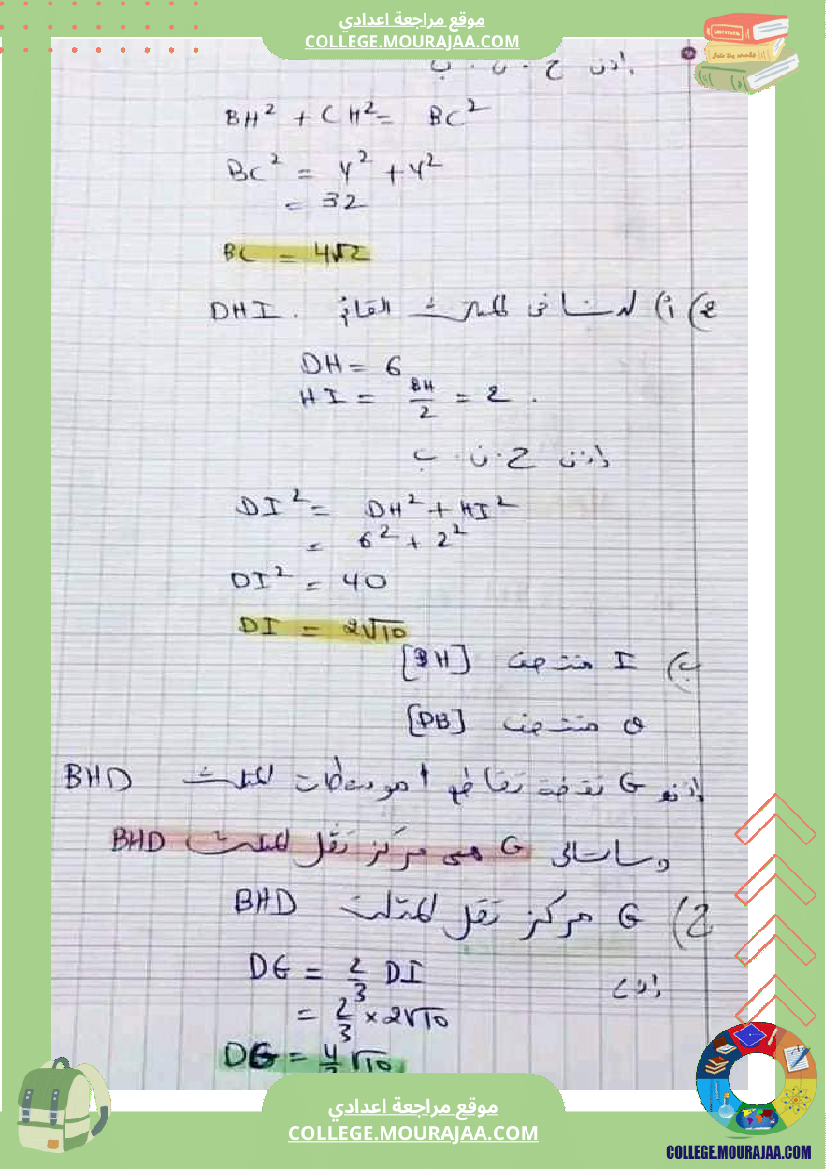 موقع مراجعة اعدادي
COLLEGE.MOURAJAA.COM
إذن ح . ن . ب
BH² + CH² = BC²
BC² = 4² + 4²
= 32
BC = 4√2
2) أ) لدينا في المثلث القائم DHI .
DH = 6
HI = BH/2 = 2 .
إذن ح . ن . ب
DI² = DH² + HI²
= 6² + 2²
DI² = 40
DI = 2√10
ب) I منتصف [BH]
O منتصف [DB]
إذن G نقطة تقاطع موسطات المثلث BHD
وبالتالي G هي مركز ثقل المثلث BHD
ج) G مركز ثقل المثلث BHD
إذن DG = 2/3 DI
= 2/3 × 2√10
DG = 4/3 √10
موقع مراجعة اعدادي
COLLEGE.MOURAJAA.COM
COLLEGE.MOURAJAA.COM